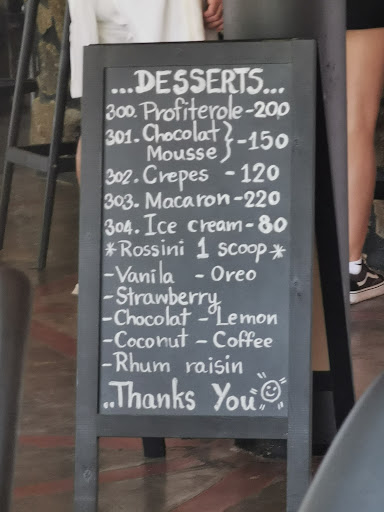 ...DESSERTS...
300. Profiterole-200
301. Chocolat
Mousse } -150
302. Crepes - 120
303. Macaron-220
304. Ice cream-80
*Rossini 1 scoop*
-Vanila -Oreo
-Strawberry
-Chocolat - Lemon
-Coconut - Coffee
-Rhum raisin
..Thanks You